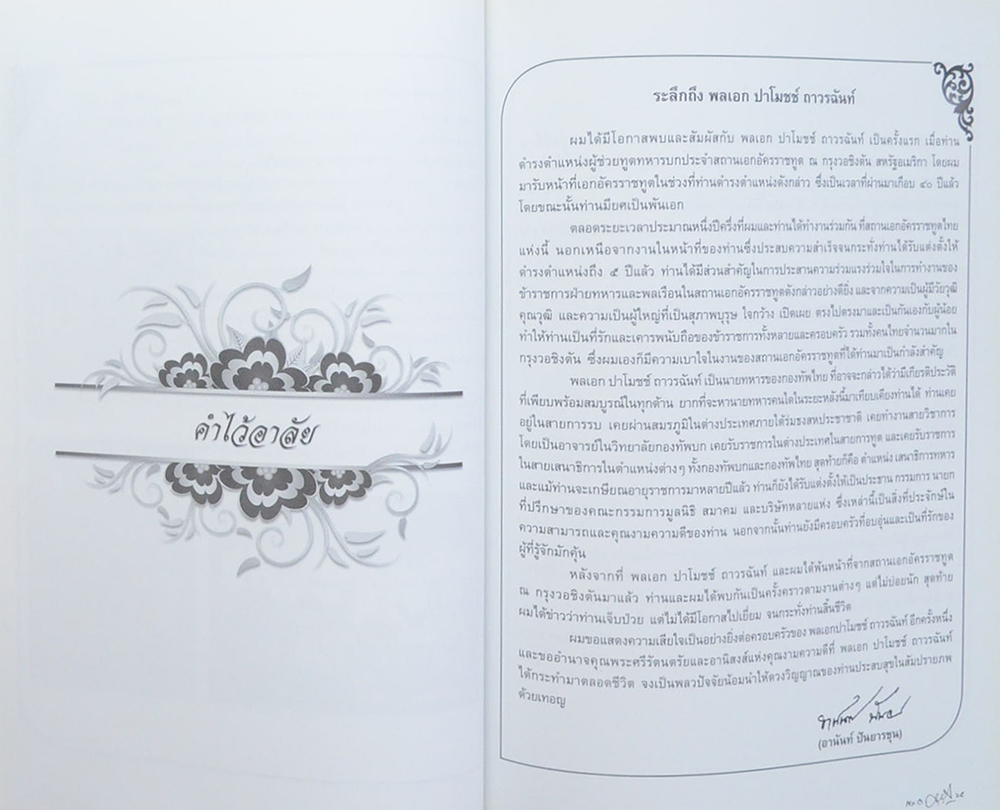 คำไว้อาลัย
ระลึกถึง พลเอก ปาโมชช์ ถาวรฉันท์
ผมได้มีโอกาสพบและสัมผัสกับ พลเอก ปาโมชช์ ถาวรฉันท์ เป็นครั้งแรก เมื่อท่าน
ดำรงตำแหน่งผู้ช่วยทูตทหารบกประจำสถานเอกอัครราชทูต ณ กรุงวอชิงตัน สหรัฐอเมริกา โดยผม
มารับหน้าที่เอกอัครราชทูตในช่วงที่ท่านดำรงตำแหน่งดังกล่าว ซึ่งเป็นเวลาที่ผ่านมาเกือบ ๔๐ ปีแล้ว
โดยขณะนั้นท่านมียศเป็นพันเอก
ตลอดระยะเวลาประมาณหนึ่งปีครึ่งที่ผมและท่านได้ทำงานร่วมกัน ที่สถานเอกอัครราชทูตไทย
แห่งนี้ นอกเหนือจากงานในหน้าที่ของท่านซึ่งประสบความสำเร็จจนกระทั่งท่านได้รับแต่งตั้งให้
ดำรงตำแหน่งถึง ๕ ปีแล้ว ท่านได้มีส่วนสำคัญในการประสานความร่วมแรงร่วมใจในการทำงานของ
ข้าราชการฝ่ายทหารและพลเรือนในสถานเอกอัครราชทูตดังกล่าวอย่างดียิ่ง และจากความเป็นผู้มีวัยวุฒิ
คุณวุฒิ และความเป็นผู้ใหญ่ที่เป็นสุภาพบุรุษ ใจกว้าง เปิดเผย ตรงไปตรงมาและเป็นกันเองกับผู้น้อย
ทำให้ท่านเป็นที่รักและเคารพนับถือของข้าราชการทั้งหลายและครอบครัว รวมทั้งคนไทยจำนวนมากใน
กรุงวอชิงตัน ซึ่งผมเองก็มีความเบาใจในงานของสถานเอกอัครราชทูตที่ได้ท่านมาเป็นกำลังสำคัญ
พลเอก ปาโมชช์ ถาวรฉันท์ เป็นนายทหารของกองทัพไทย ที่อาจจะกล่าวได้ว่ามีเกียรติประวัติ
ที่เพียบพร้อมสมบูรณ์ในทุกด้าน ยากที่จะหานายทหารคนใดในระยะหลังนี้มาเทียบเคียงท่านได้ ท่านเคย
อยู่ในสายการรบ เคยผ่านสมรภูมิในต่างประเทศภายใต้ร่มธงสหประชาชาติ เคยทำงานสายวิชาการ
โดยเป็นอาจารย์ในวิทยาลัยกองทัพบก เคยรับราชการในต่างประเทศในสายการทูต และเคยรับราชการ
ในสายเสนาธิการในตำแหน่งต่างๆ ทั้งกองทัพบกและกองทัพไทย สุดท้ายก็คือ ตำแหน่ง เสนาธิการทหาร
และแม้ท่านจะเกษียณอายุราชการมาหลายปีแล้ว ท่านก็ยังได้รับแต่งตั้งให้เป็นประธาน กรรมการ นายก
ที่ปรึกษาของคณะกรรมการมูลนิธิ สมาคม และบริษัทหลายแห่ง ซึ่งเหล่านี้เป็นสิ่งที่ประจักษ์ใน
ความสามารถและคุณงามความดีของท่าน นอกจากนั้นท่านยังมีครอบครัวที่อบอุ่นและเป็นที่รักของ
ผู้ที่รู้จักมักคุ้น
หลังจากที่ พลเอก ปาโมชช์ ถาวรฉันท์ และผมได้พ้นหน้าที่จากสถานเอกอัครราชทูต
ณ กรุงวอชิงตันมาแล้ว ท่านและผมได้พบกันเป็นครั้งคราวตามงานต่างๆ แต่ไม่บ่อยนัก สุดท้าย
ผมได้ข่าวว่าท่านเจ็บป่วย แต่ไม่ได้มีโอกาสไปเยี่ยม จนกระทั่งท่านสิ้นชีวิต
ผมขอแสดงความเสียใจเป็นอย่างยิ่งต่อครอบครัวของ พลเอกปาโมชช์ ถาวรฉันท์ อีกครั้งหนึ่ง
และขออำนาจคุณพระศรีรัตนตรัยและอานิสงส์แห่งคุณงามความดีที่ พลเอก ปาโมชช์ ถาวรฉันท์
ได้กระทำมาตลอดชีวิต จงเป็นพลวปัจจัยน้อมนำให้ดวงวิญญาณของท่านประสบสุขในสัมปรายภพ
ด้วยเทอญ
(อานันท์ ปันยารชุน)